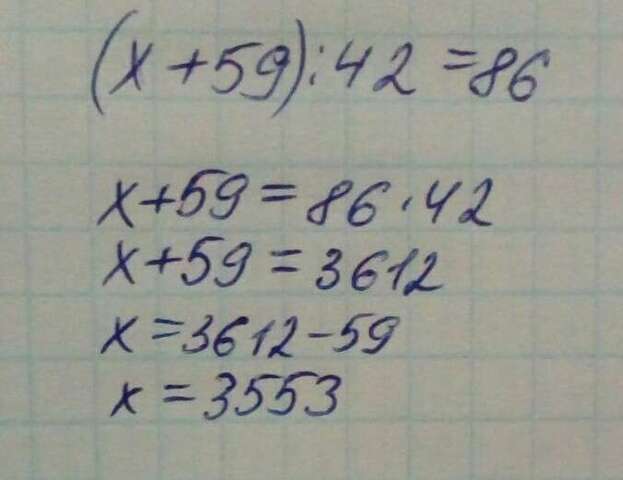 (x+59):42=86
x+59=86·42
x+59=3612
x=3612-59
x=3553